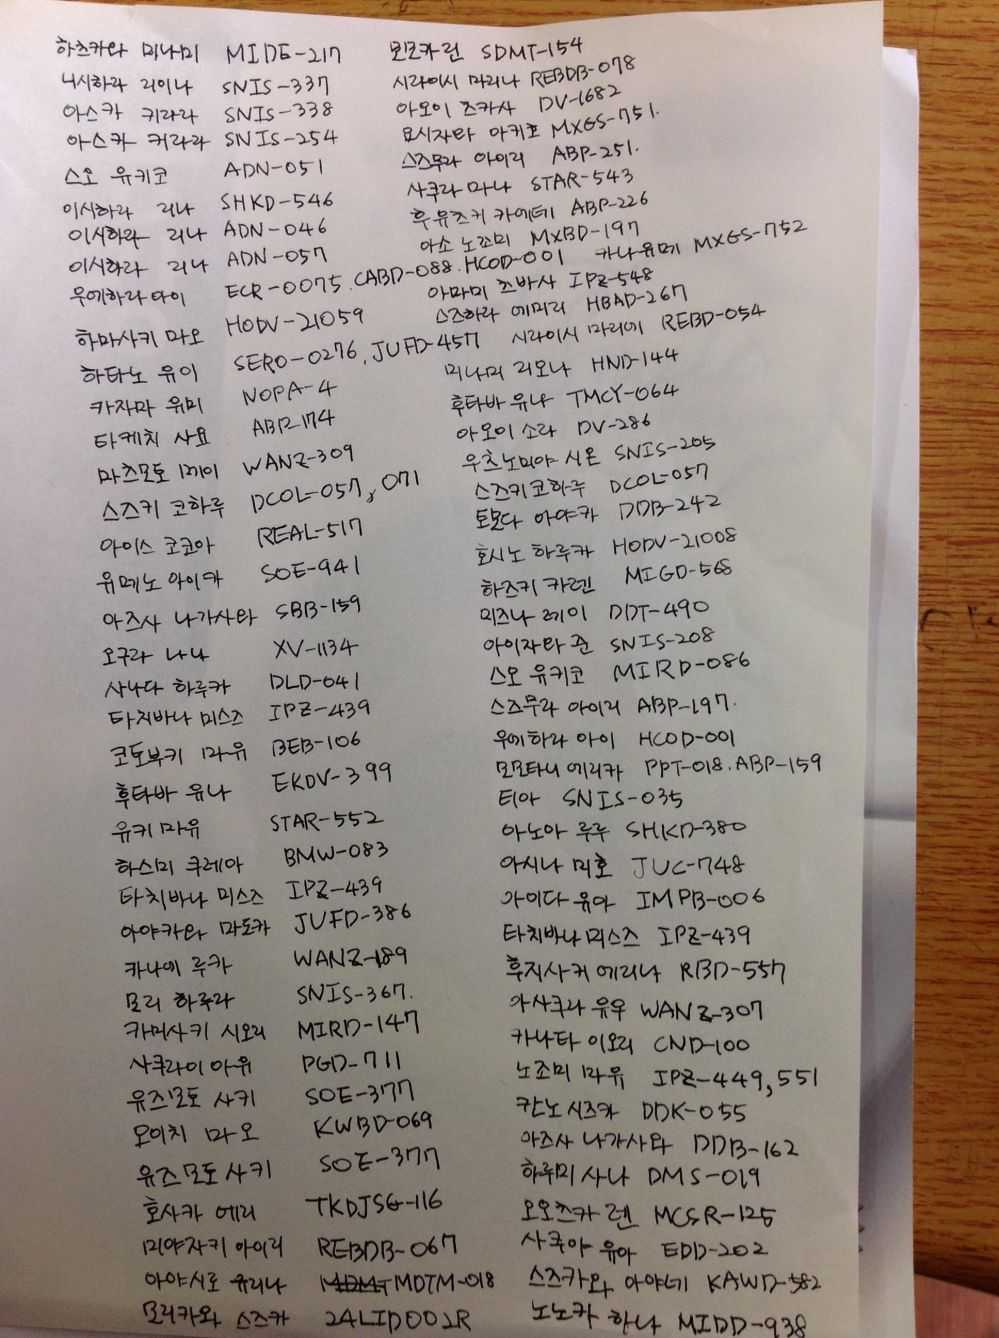 하츠카와 미나미 MIDE-217
니시하라 리이나 SNIS-337
아스카 키라라 SNIS-338
아스카 키라라 SNIS-254
스오 유키코 ADN-051
이시하라 리나 SHKD-546
이시하라 리나 ADN-046
이시하라 리나 ADN-057
우에하라 아이 ECR-0075. CABD-088. HCOD-001
하마사키 마오 HODV-21059
하타노 유이 SERO-0276, JUFD-457
카자마 유미 NOPA-4
타케치 사요 ABP-174
마츠모토 메이 WANZ-309
스즈키 코하루 DCOL-057, 071
아이스 코코아 REAL-517
유메노 아이카 SOE-941
아즈사 나가사와 SBB-159
오구라 나나 XV-1134
사나다 하루카 DLD-041
타치바나 미스즈 IPZ-439
코토부키 마유 BEB-106
후타바 유나 EKDV-399
유키 마유 STAR-552
하스미 쿠레아 BMW-083
타치바나 미스즈 IPZ-439
아야카와 마도카 JUFD-386
카나에 루카 WANZ-189
모리 하루라 SNIS-367.
카미사키 시오리 MIRD-147
사쿠라이 아유 PGD-711
유즈모토 사키 SOE-377
오이치 마오 KWBD-069
유즈모토 사키 SOE-377
호사카 에리 TKDJSG-116
미야자키 아이리 REBDB-067
아야시로 유리나 MDTM-018
모리카와 스즈카 24LID002R
모모카 린 SDMT-154
시라이시 마리나 REBDB-078
아오이 츠카사 DV-1682
요시자와 아키호 MXGS-751.
스즈무라 아이리 ABP-251.
사쿠라 마나 STAR-543
후유츠키 카에데 ABP-226
아소 노조미 MXBD-197
카나 유메 MXGS-752
아마미 츠바사 IPZ-548
스즈하라 에미리 HBAD-267
시라이시 마리에 REBD-054
미나미 리오나 HND-144
후타바 유나 TMCY-064
아오이 소라 DV-286
우츠노미야 시온 SNIS-205
스즈키 코하루 DCOL-057
토모다 아야카 DDB-242
호시노 하루카 HODV-21008
하즈키 카렌 MIGD-568
미즈나 레이 DDT-490
아이자와 준 SNIS-208
스오 유키코 MIRD-086
스즈무라 아이리 ABP-197.
우에하라 아이 HCOD-001
모모타니 에리카 PPT-018. ABP-159
티아 SNIS-035
아노아 루루 SHKD-380
아시나 미호 JUC-748
아이다 유아 IMPB-006
타치바나 미스즈 IPZ-439
후지사키 에리나 RBD-557
아사쿠라 유우 WANZ-307
카나타 이오리 CND-100
노조미 마유 IPZ-449, 551
칸노 시즈카 DDK-055
아즈사 나가사와 DDB-162
하루미 사나 DMS-019
오오츠카 렌 MCSR-125
사쿠야 유아 EDD-202
스즈카와 아야네 KAWD-582
노노카 하나 MIDD-938